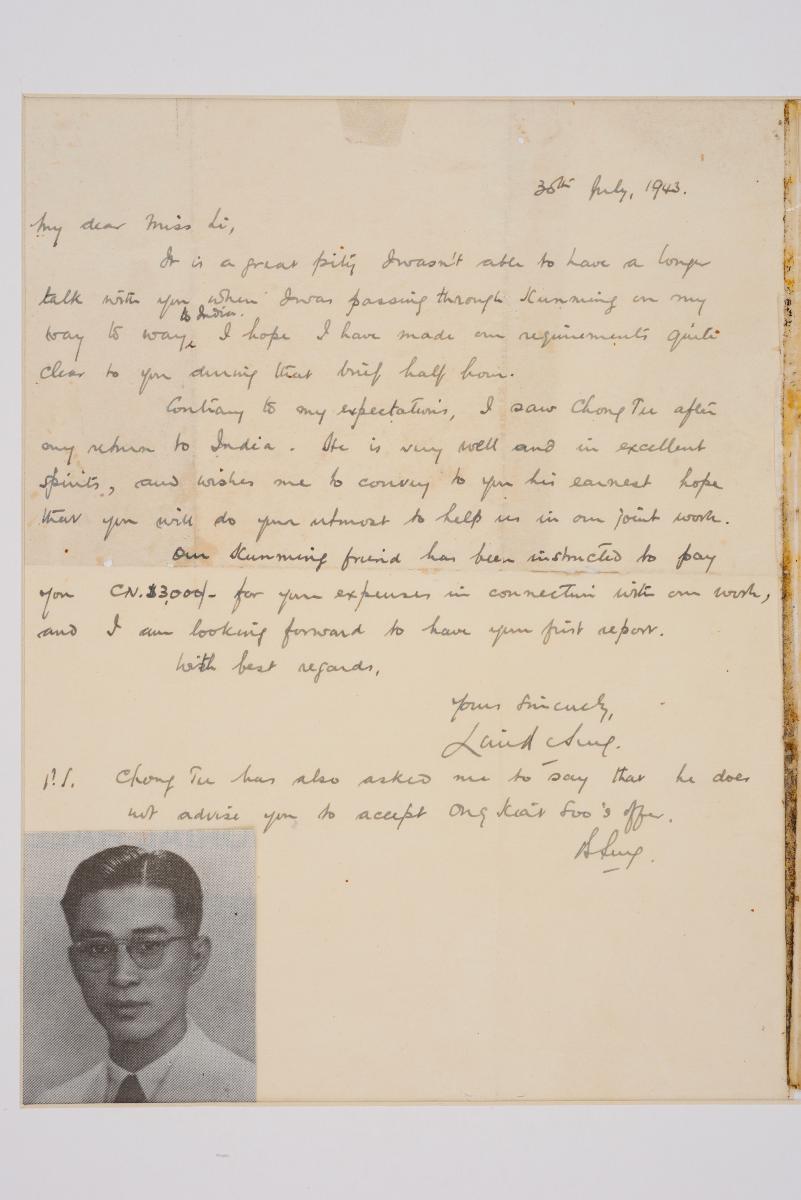 30th July, 1943.
My dear Miss Li,
It is a great pity I wasn't able to have a longer
talk with you when I was passing through Kunming on my
to India.
way to way, I hope I have made our requirements quite
clear to you during that brief half hour.
Contrary to my expectations, I saw Chong Tee after
my return to India. He is very well and in excellent
spirits, and wishes me to convey to you his earnest hope
that you will do your utmost to help us in our joint work.
Our Kunming friend has been instructed to pay
you CN.$3,000/- for your expenses in connection with our work,
and I am looking forward to have your first report.
With best regards,
Yours sincerely,
P.S. Chong Tee has also asked me to say that he does
not advise you to accept Ong Kiat Soo's offer.